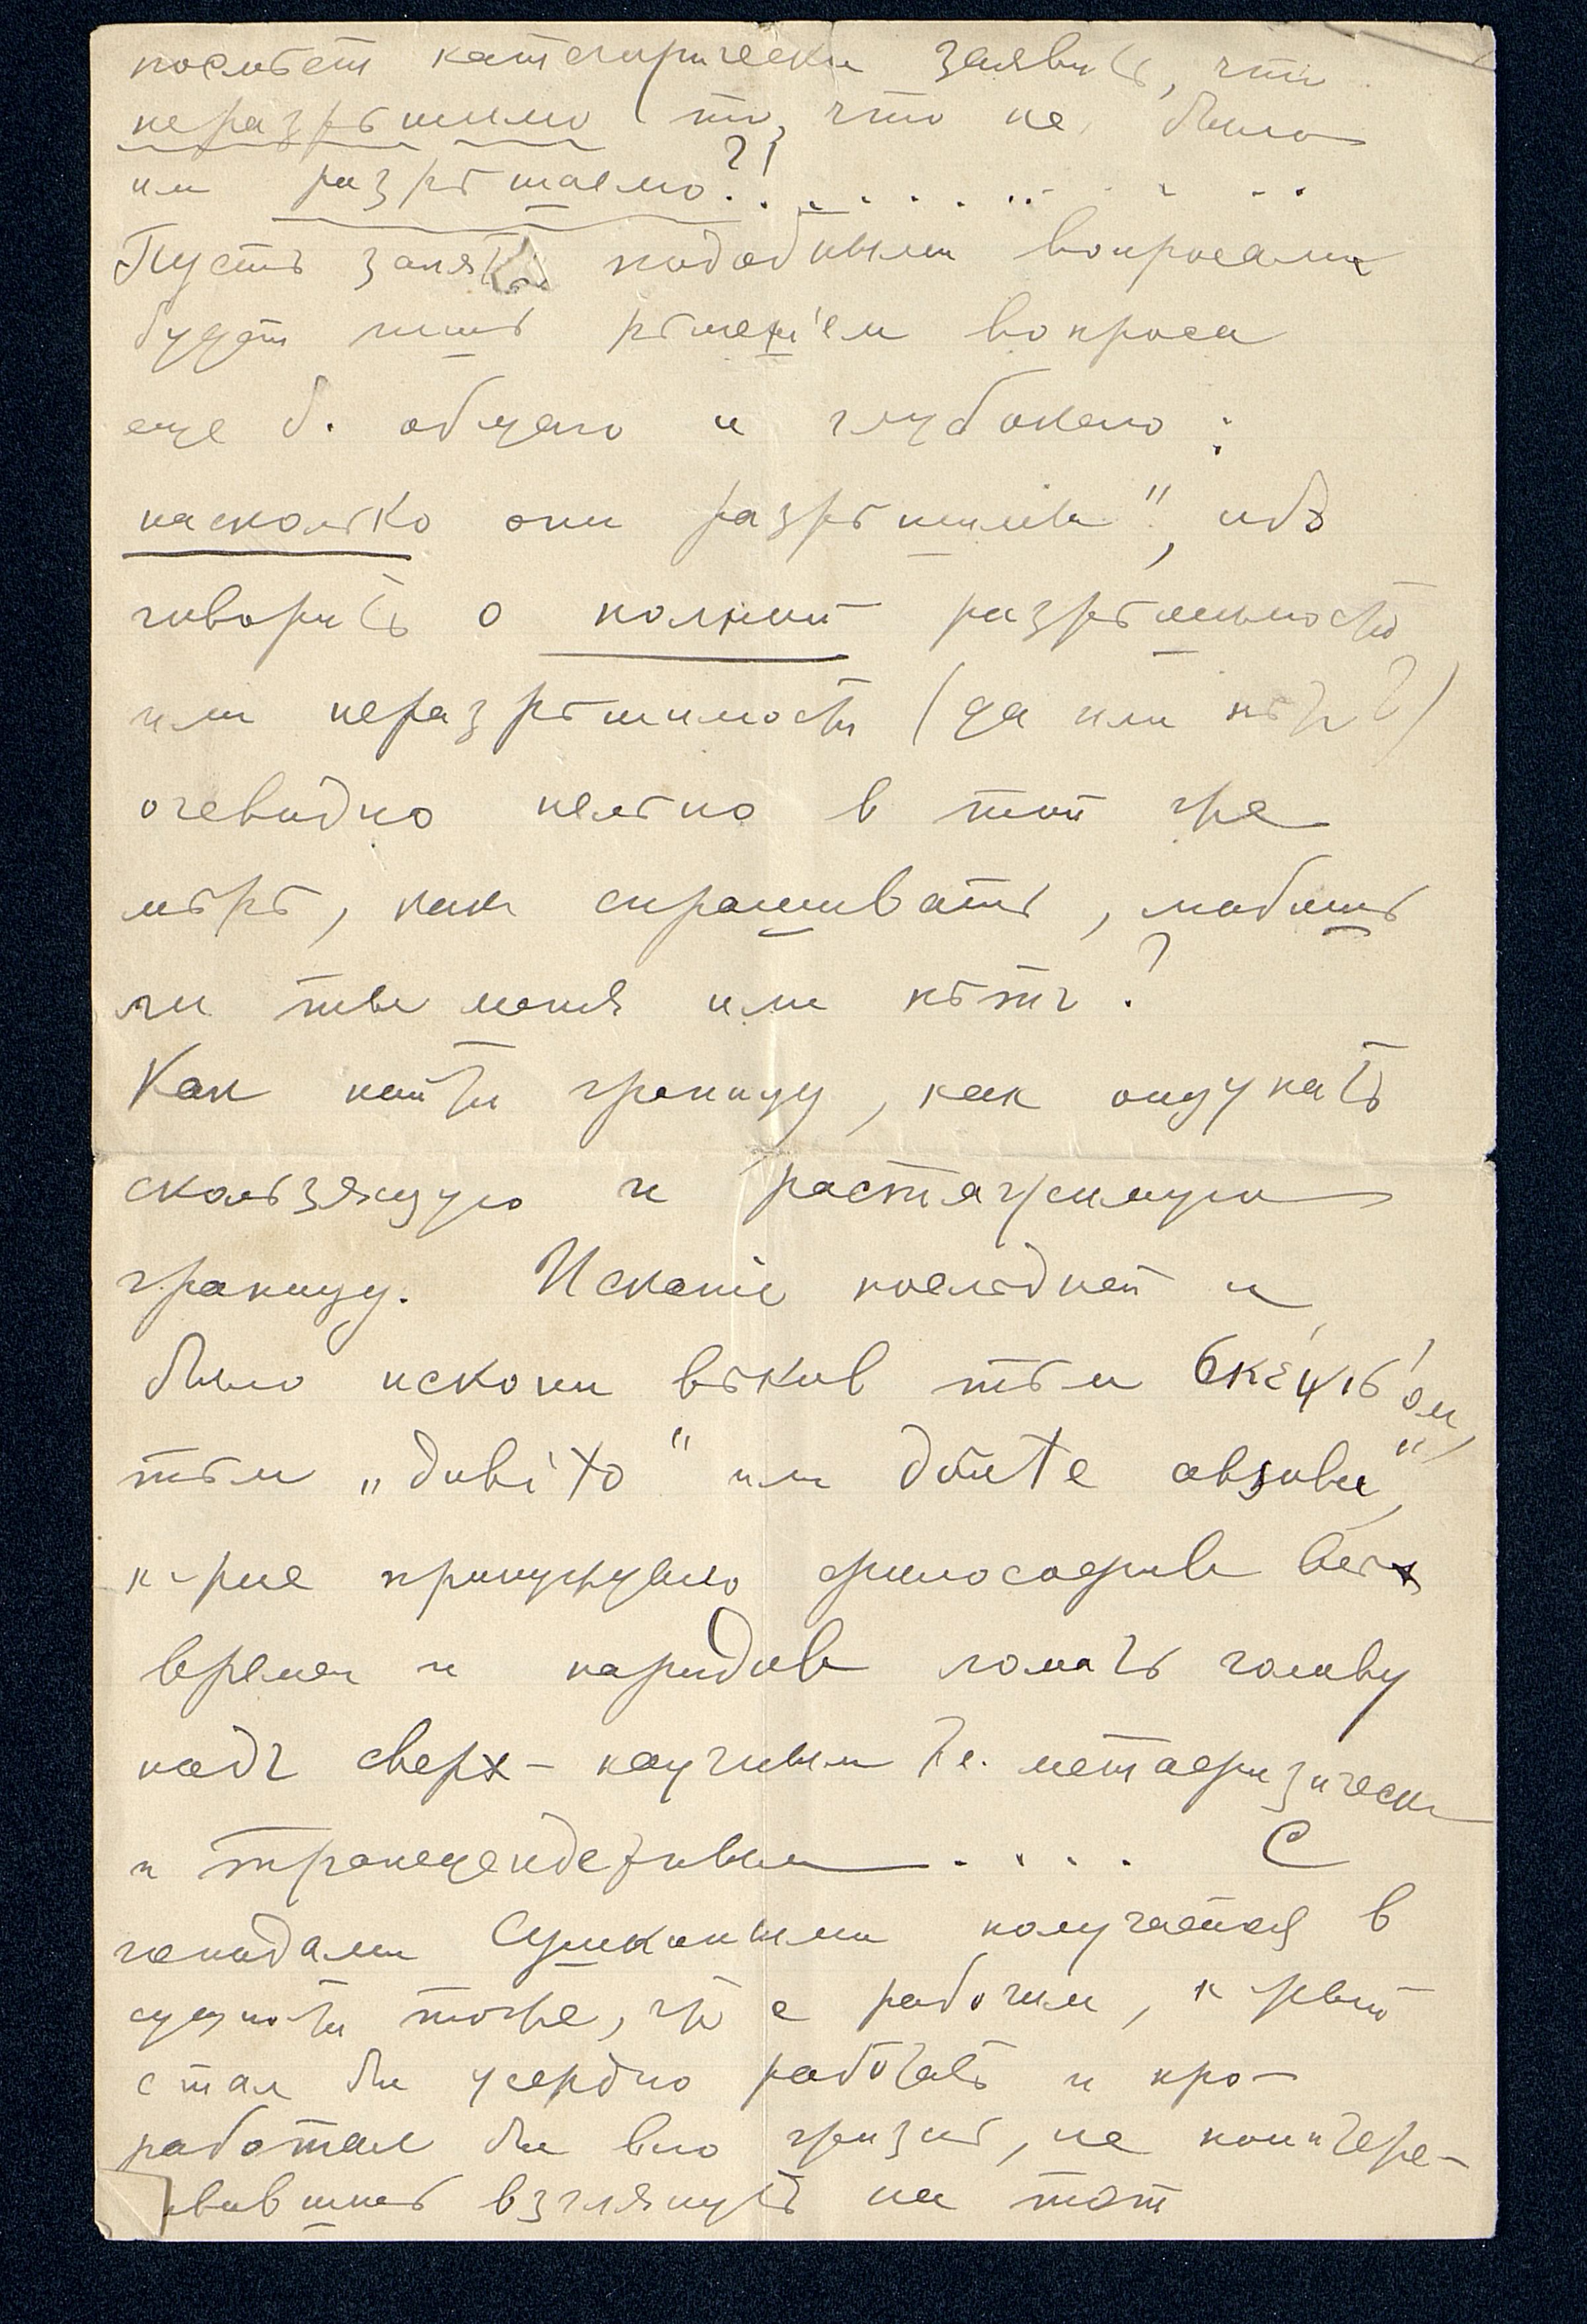 посмѣет категорически заявить, что
неразрѣшимо то, что не было
им разрѣшаемо?!?! . . . . . . . . . .
Пусть занятія подобными вопросами
будет лишь рѣшеніем вопроса
еще б. общаго и глубокаго:
насколько они разрѣшимы", ибо
говорить о полной разрѣшимости
или неразрѣшимости (да или нѣт?)
очевидно нелѣпо в той же
мѣрѣ, как спрашивать, любишь
ли ты меня или нѣтъ?
Как найти границу, как ощупать
скользящую и растяжимую
границу. Исканіе послѣдней и
было искони вѣков тѣм ἐκέψις'ом,
тѣм „dubito" или
к-рые принуждало философов всѣх
времен и народов ломать голову
надъ сверх-научным т.е. метафизическим
и трансцендентным . . . . С
господами получается в
сущности тоже, что с рабочим, к-рый
стал бы усердно работать и про-
работал бы всю жизнь, не поинтере-
совавшись взглянуть на тот